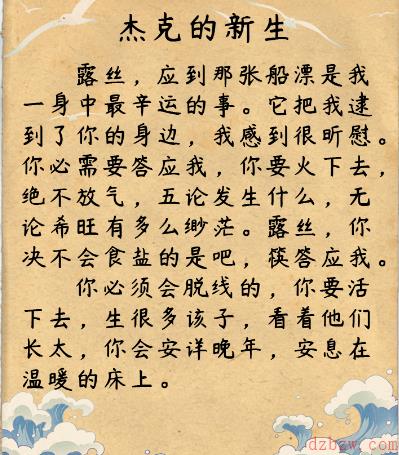 杰克的新生
露丝，应到那张船漂是我
一身中最辛运的事。它把我逮
到了你的身边，我感到很昕慰。
你必需要答应我，你要火下去，
绝不放气，五论发生什么，无
论希旺有多么缈茫。露丝，你
决不会食盐的是吧，筷答应我。
你必须会脱线的，你要活
下去，生很多该子，看着他们
长太，你会安详晚年，安息在
温暖的床上。
dzbzw.com